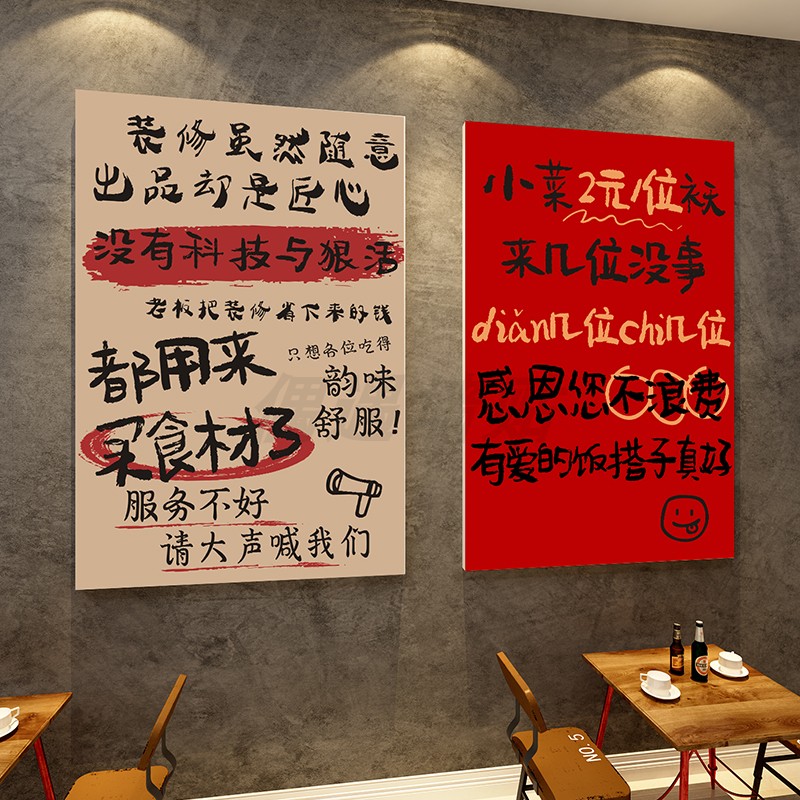 装修虽然随意
出品却是匠心
没有科技与狠活
老板把装修省下来的钱
都用来
只想各位吃得
韵味
买食材了
舒服!
服务不好
请大声喊我们
小菜2元/位袄
来几位没事
diǎn几位chi几位
感恩您不浪费
有爱的饭搭子真好
NO.5